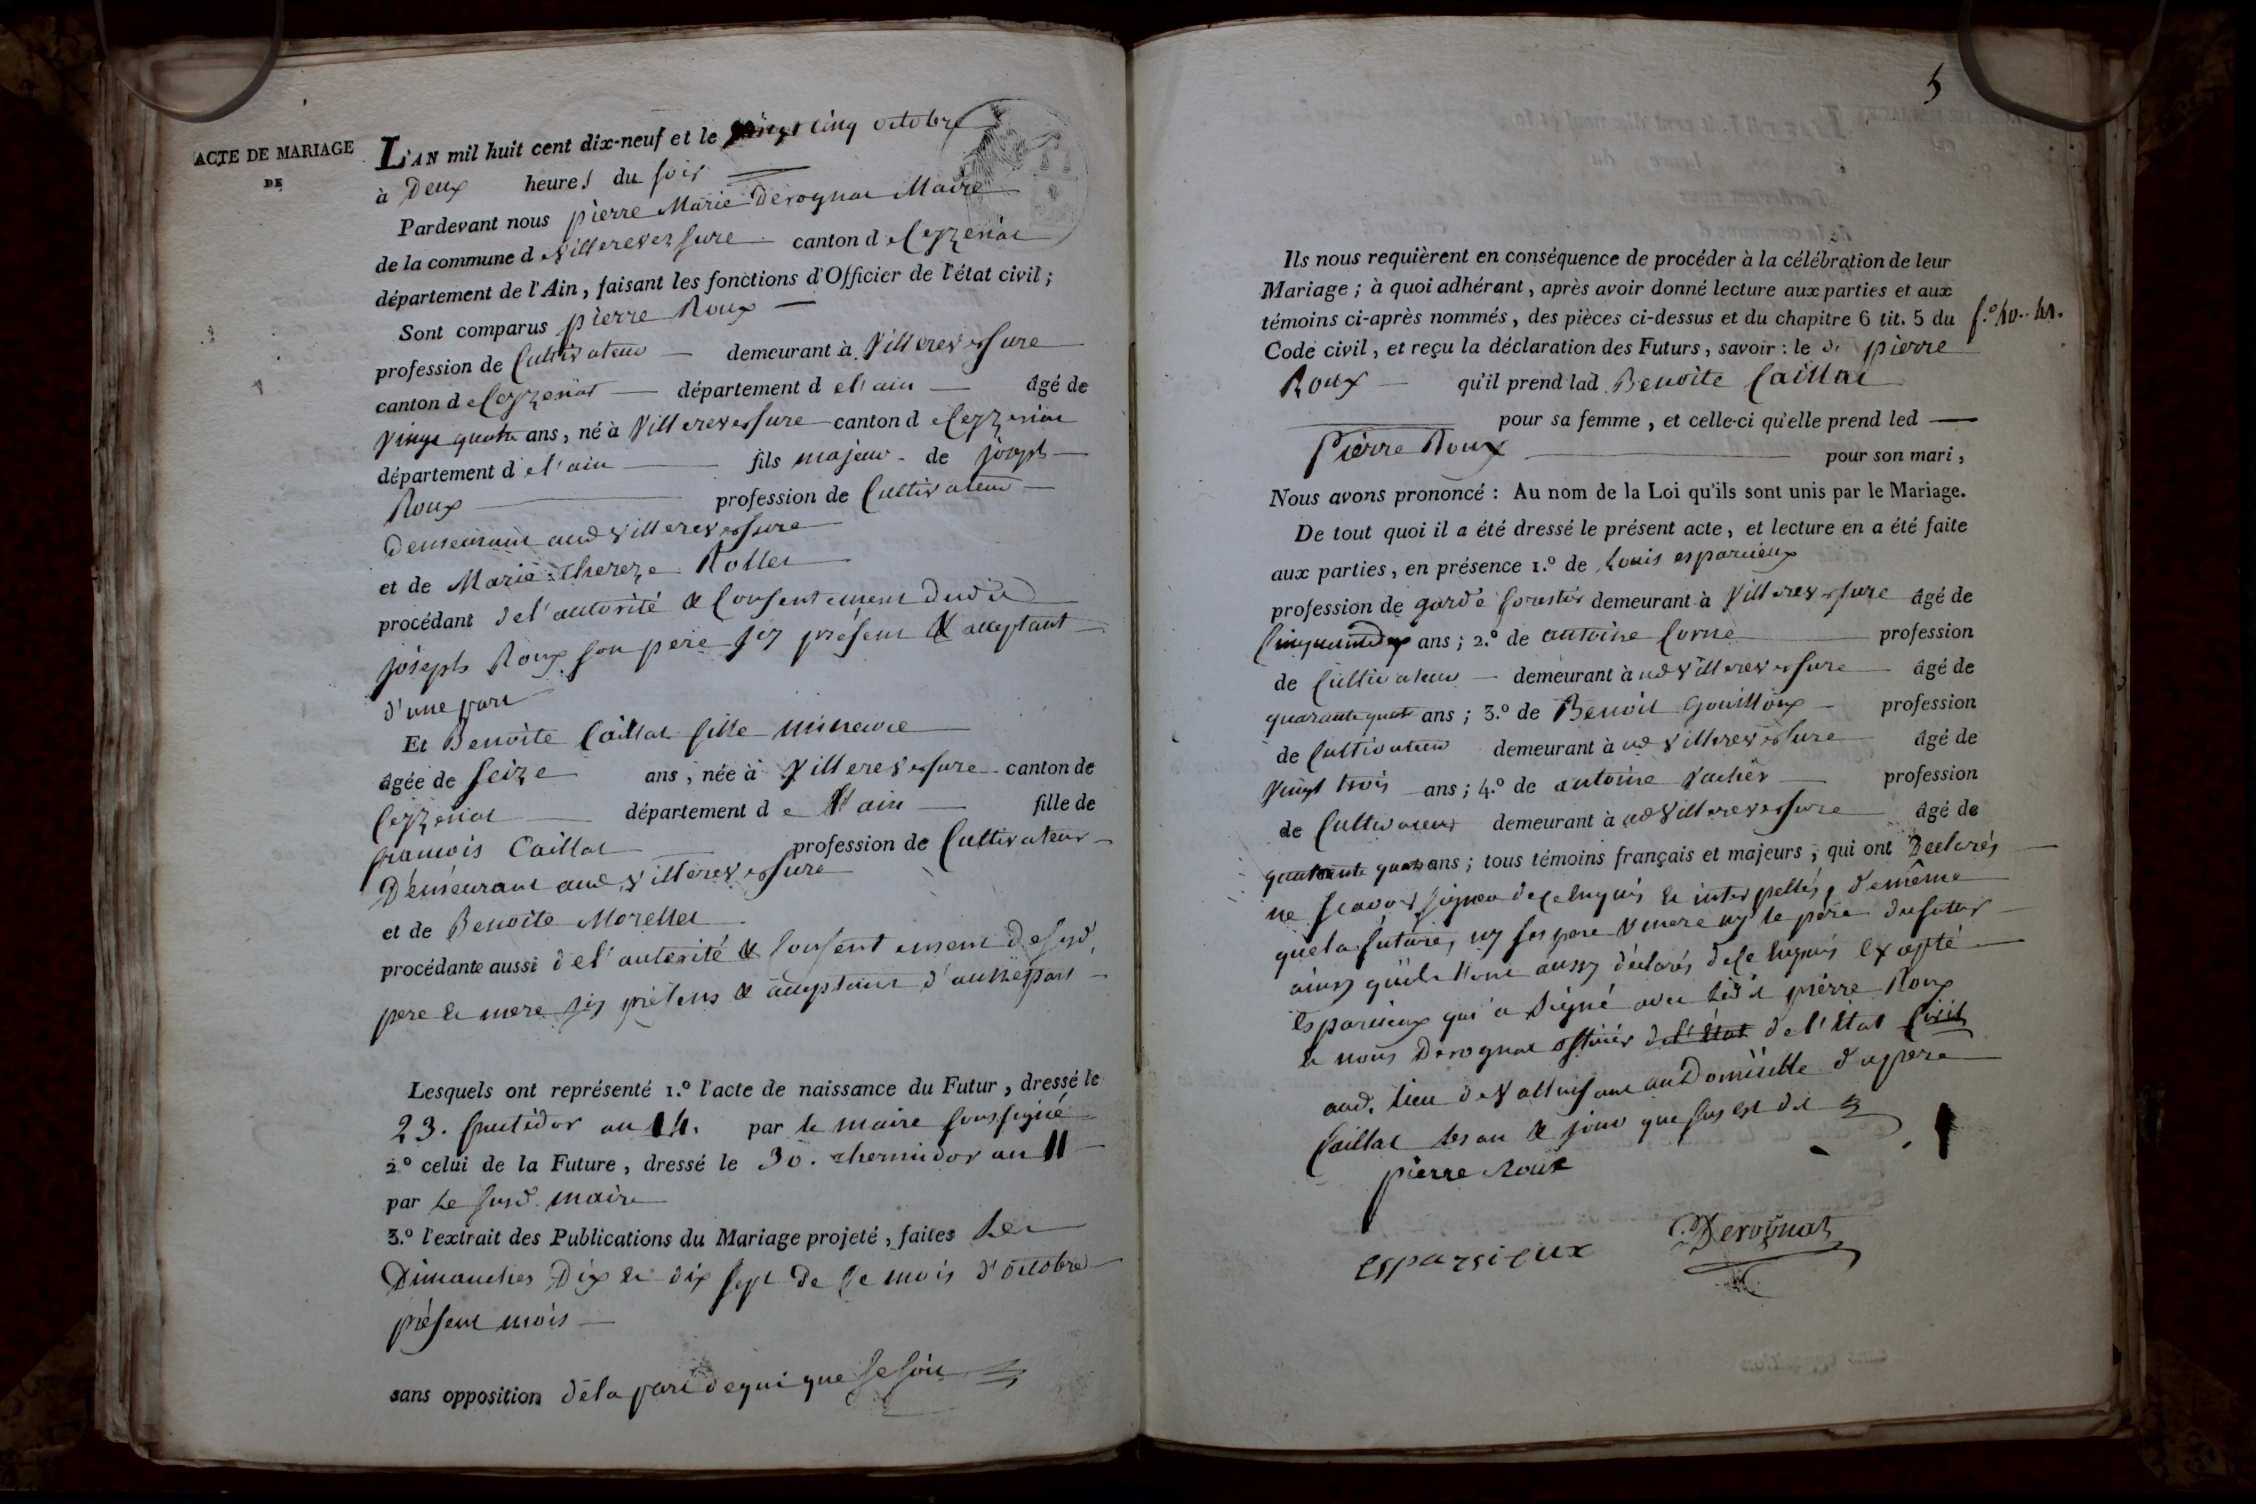 ACTE DE MARIAGE
DE
L'AN mil huit cent dix-neuf et le vingt cinq octobre
à Deux heures du soir
Pardevant nous pierre Marie Derognat Maire
de la commune de Villereversure canton de Ceyzeriat
département de l'Ain, faisant les fonctions d'Officier de l'état civil;
Sont comparus pierre Roux
profession de Cultivateur demeurant à Villereversure
canton de Ceyzeriat département de l'ain âgé de
vingt quatre ans, né à Villereversure canton de Ceyzeriat
département de l'ain fils majeur de joseph
Roux profession de Cultivateur
Demeurant aud Villereversure
et de Marie Thereze Rollet
procédant de l'autorité & Consentement dudit
joseph Roux son pere icy présent & acceptant
d'une part
Et Benoite Caillat fille mineure
âgée de seize ans, née à Villereversure canton de
Ceyzeriat département de l'ain fille de
francois Caillat profession de Cultivateur
Demeurant aud Villereversure
et de Benoite Morellet
procédante aussi de l'autorité & Consentement de sesd.
pere et mere icy présens & acceptant d'autre part
Lesquels ont représenté 1.º l'acte de naissance du Futur, dressé le
23. fructidor an 14. par le maire soussigné
2º celui de la Future, dressé le 30. thermidor an 11
par le susd. maire
3.º l'extrait des Publications du Mariage projeté, faites Les
Dimanches Dix et dix sept de ce mois d'octobre
présent mois
sans opposition de la part de qui que se soit
5
Ils nous requièrent en conséquence de procéder à la célébration de leur
Mariage; à quoi adhérant, après avoir donné lecture aux parties et aux
témoins ci-après nommés, des pièces ci-dessus et du chapitre 6 tit. 5 du
Code civil, et reçu la déclaration des Futurs, savoir: le d. pierre
Roux qu'il prend lad Benoite Caillat
pour sa femme, et celle-ci qu'elle prend led
Pierre Roux pour son mari,
Nous avons prononcé: Au nom de la Loi qu'ils sont unis par le Mariage.
De tout quoi il a été dressé le présent acte, et lecture en a été faite
aux parties, en présence 1.º de Louis esparcieux
profession de garde forestier demeurant à Villereversure âgé de
Cinquante deux ans; 2.º de antoine Corne profession
de Cultivateur demeurant à ud Villereversure âgé de
quarante quatre ans; 3.º de Benoit Gouilloux profession
de Cultivateur demeurant à ud Villereversure âgé de
vingt trois ans; 4.º de antoine Vachier profession
de Cultivateur demeurant à ud Villereversure âgé de
quarante quatre ans; tous témoins français et majeurs, qui ont Déclarés
ne scavoir signer de ce enquis et interpellés, de même
que la future, ny ses pere & mere ny le père du futur
ainsy qu'ils l'ont aussy déclarés de ce enquis excepté
Esparcieux qui a signé avec led. pierre Roux
et nous Derognat officier de l'état de l'état Civil
aud. lieu de au Domicille du pere
Caillat les an & jour que sus est dit
pierre Roux
esparsieux
Derognat